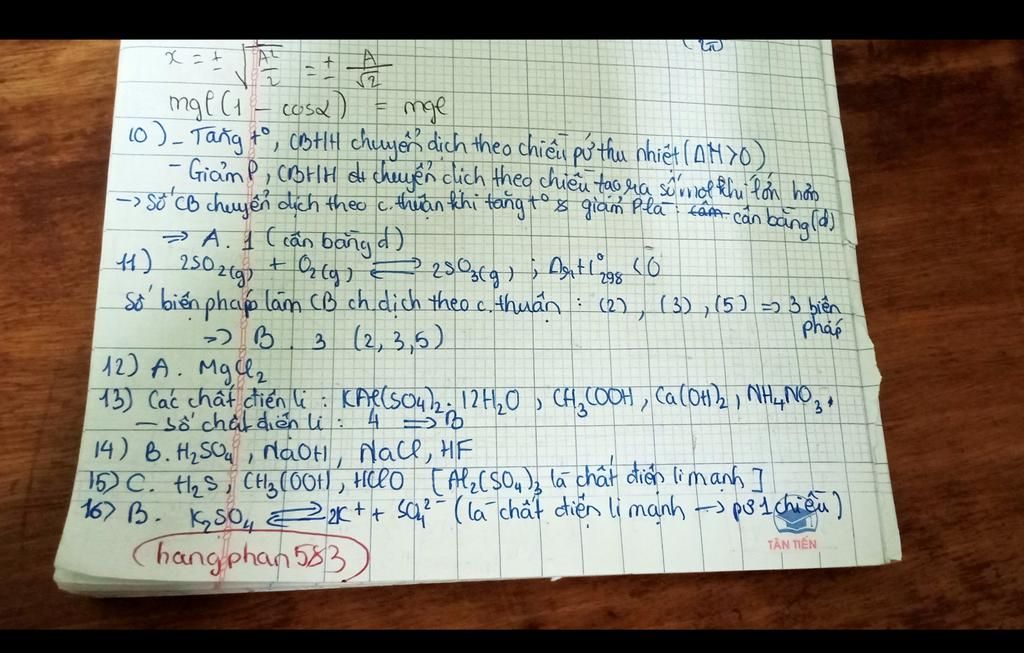 (2π)
x = ± √A²/2 = ± A/√2
mgl(1 - cosα) = mgl
10) - Tăng t°, CBHH chuyển dịch theo chiều pứ thu nhiệt (ΔH>0)
- Giảm P, CBHH chuyển dịch theo chiều tạo ra số mol khí lớn hơn
-> Số CB chuyển dịch theo c.thuận khi tăng t° & giảm P là: cân bằng (d)
=> A. 1 (cân bằng d)
11) 2SO₂(g) + O₂(g) ⇌ 2SO₃(g) ; ΔrH°₂₉₈ < 0
Số biện pháp làm CB ch.dịch theo c.thuận : (2), (3), (5) => 3 biện pháp
=> B. 3 (2,3,5)
12) A. MgCl₂
13) Các chất điện li : KAl(SO₄)₂.12H₂O, CH₃COOH, Ca(OH)₂, NH₄NO₃.
- số chất điện li : 4 => B
14) B. H₂SO₄, NaOH, NaCl, HF
15) C. H₂S, CH₃COOH, HClO [Al₂(SO₄)₃ là chất điện li mạnh]
16) B. K₂SO₄ ⇌ 2K⁺ + SO₄²⁻ (là chất điện li mạnh -> pứ 1 chiều)
hangphan583
TÂN TIẾN